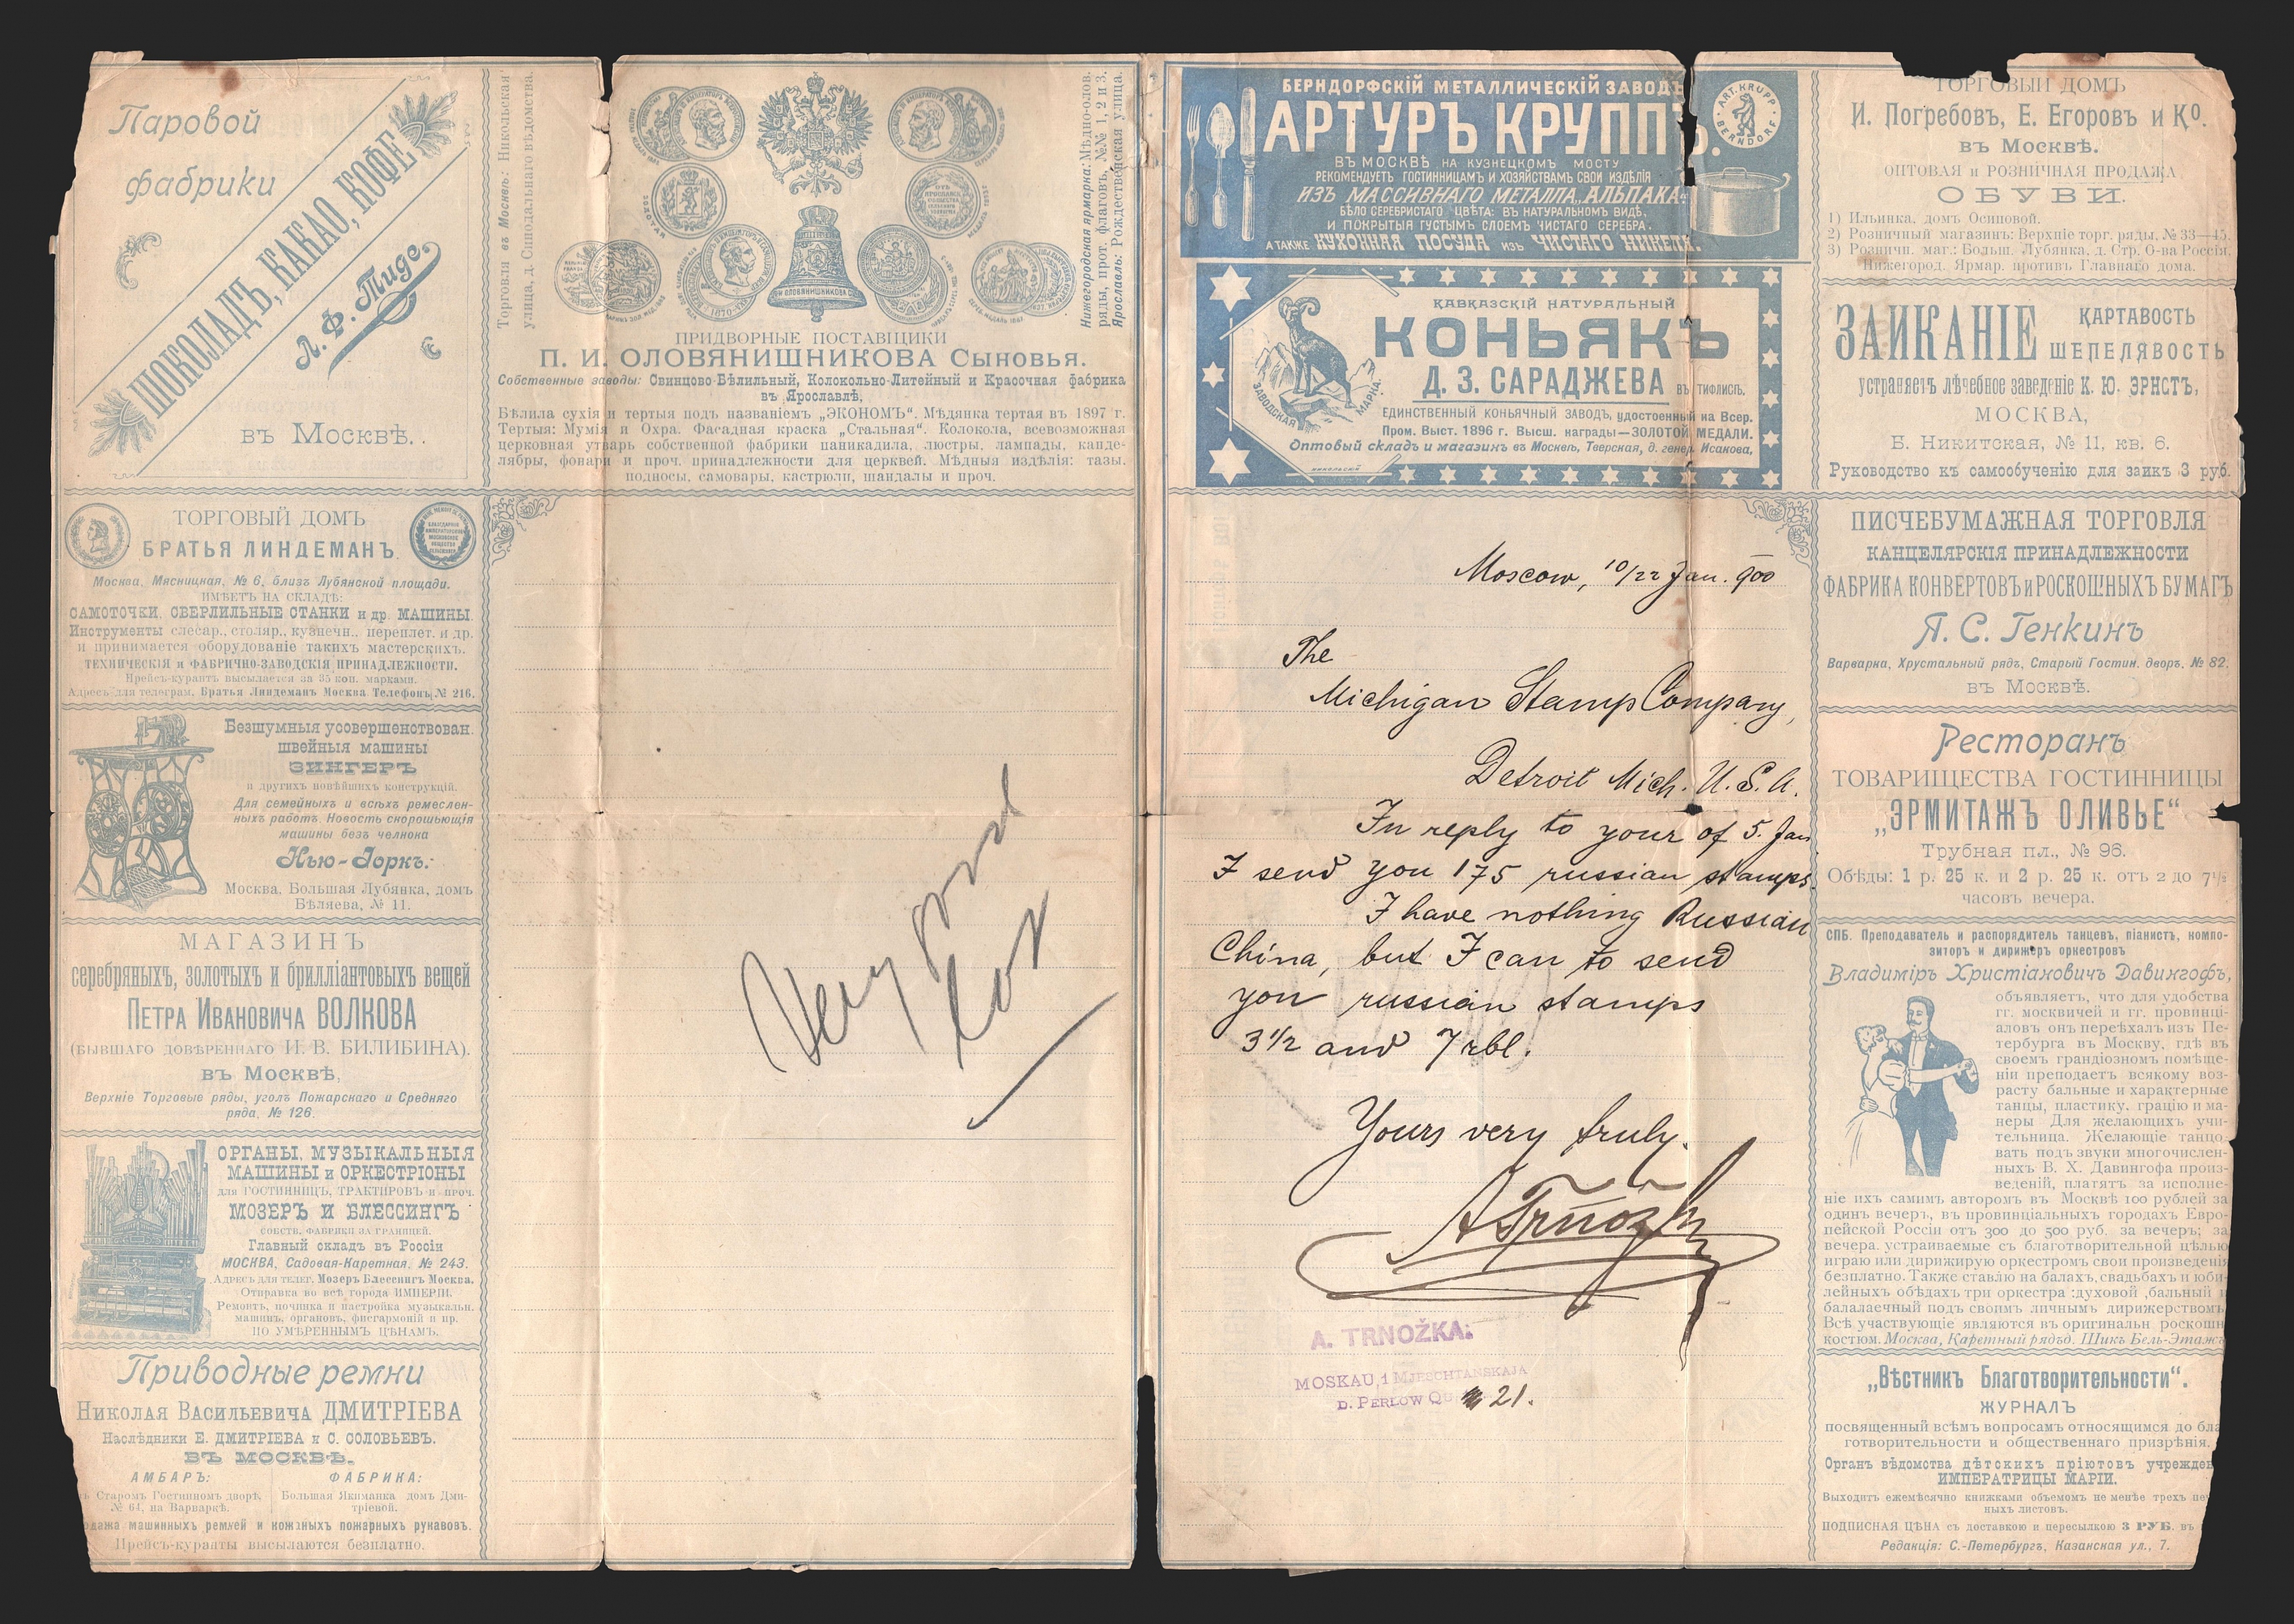 Паровой
фабрики
ШОКОЛАДЪ, КАКАО, КОФЕ
Л. Ф. Тиде.
въ Москвѣ.
ТОРГОВЫЙ ДОМЪ
БРАТЬЯ ЛИНДЕМАНЪ
Москва, Мясницкая, № 6, близъ Лубянской площади.
ИМѢЕТЪ НА СКЛАДѢ:
САМОТОЧКИ, СВЕРЛИЛЬНЫЕ СТАНКИ и др. МАШИНЫ.
Инструменты слесар., столяр., кузнечн., переплет. и др.
и принимается оборудованіе такихъ мастерскихъ.
ТЕХНИЧЕСКІЯ и ФАБРИЧНО-ЗАВОДСКІЯ ПРИНАДЛЕЖНОСТИ.
Прейсъ-курантъ высылается за 35 коп. марками.
Адресъ для телеграм. Братья Линдеманъ Москва Телефонъ № 216.
Безшумныя усовершенствован.
швейныя машины
ЗИНГЕРЪ
и другихъ новѣйшихъ конструкцій.
Для семейныхъ и всѣхъ ремеслен-
ныхъ работъ. Новость скорошьющія
машины безъ челнока
Нью-Іоркъ.
Москва, Большая Лубянка, домъ
Бѣляева, № 11.
МАГАЗИНЪ
серебряныхъ, золотыхъ и брилліантовыхъ вещей
ПЕТРА ИВАНОВИЧА ВОЛКОВА
(БЫВШАГО ДОВѢРЕННАГО И. В. БИЛИБИНА).
въ Москвѣ,
Верхніе Торговые ряды, уголъ Пожарскаго и Средняго
ряда, № 126.
ОРГАНЫ, МУЗЫКАЛЬНЫЯ
МАШИНЫ и ОРКЕСТРІОНЫ
для ГОСТИННИЦЪ, ТРАКТИРОВЪ и проч.
МОЗЕРЪ И БЛЕССИНГЪ
СОБСТВ. ФАБРИКИ ЗА ГРАНИЦЕЙ.
Главный складъ въ Россіи
МОСКВА, Садовая-Каретная, № 243.
АДРЕСЪ ДЛЯ ТЕЛЕГ. Мозеръ Блессингъ Москва.
Отправка во всѣ города ИМПЕРІИ.
Ремонтъ, починка и настройка музыкальн.
машинъ, органовъ, фисгармоній и пр.
ПО УМѢРЕННЫМЪ ЦѢНАМЪ.
Приводные ремни
НИКОЛАЯ ВАСИЛЬЕВИЧА ДМИТРІЕВА
Наслѣдники Е. ДМИТРІЕВА и С. СОЛОВЬЕВЪ.
ВЪ МОСКВѢ.
АМБАРЪ: ФАБРИКА:
Старомъ Гостинномъ дворѣ, Большая Якиманка домъ Дми-
№ 64, на Варваркѣ. тріевой.
машинныхъ ремней и кожаныхъ пожарныхъ рукавовъ.
Прейсъ-куранты высылаются безплатно.
Торговля въ Москвѣ: Никольская
улица, д. Синодальнаго вѣдомства.
Нижегородская ярмарка: Мѣдно-олов.
ряды, прот. флаговъ, №№ 1, 2 и 3.
Ярославль: Рождественская улица.
ПРИДВОРНЫЕ ПОСТАВЩИКИ
П. И. ОЛОВЯНИШНИКОВА СЫНОВЬЯ.
Собственные заводы: Свинцово-Бѣлильный, Колокольно-Литейный и Красочная фабрика
въ Ярославлѣ.
Бѣлила сухія и тертыя подъ названіемъ „ЭКОНОМЪ“. Мѣдянка тертая въ 1897 г.
Тертыя: Мумія и Охра. Фасадная краска „Стальная“. Колокола, всевозможная
церковная утварь собственной фабрики паникадила, люстры, лампады, канде-
лябры, фонари и проч. принадлежности для церквей. Мѣдныя издѣлія: тазы.
подносы, самовары, кастрюли, шандалы и проч.
Very good
БЕРНДОРФСКІЙ МЕТАЛЛИЧЕСКІЙ ЗАВОДЪ
АРТУРЪ КРУППЪ.
ART. KRUPP
BERNDORF.
ВЪ МОСКВѢ НА КУЗНЕЦКОМЪ МОСТУ
РЕКОМЕНДУЕТЪ ГОСТИННИЦАМЪ И ХОЗЯЙСТВАМЪ СВОИ ИЗДѢЛІЯ
ИЗЪ МАССИВНАГО МЕТАЛЛА „АЛЬПАКА“
БѢЛО СЕРЕБРИСТАГО ЦВѢТА: ВЪ НАТУРАЛЬНОМЪ ВИДѢ.
И ПОКРЫТЫЯ ГУСТЫМЪ СЛОЕМЪ ЧИСТАГО СЕРЕБРА.
А ТАКЖЕ КУХОННАЯ ПОСУДА ИЗЪ ЧИСТАГО НИКЕЛЯ.
КАВКАЗСКІЙ НАТУРАЛЬНЫЙ
КОНЬЯКЪ
Д. З. САРАДЖЕВА ВЪ ТИФЛИСѢ.
ЗАВОДСКАЯ МАРКА.
ЕДИНСТВЕННЫЙ КОНЬЯЧНЫЙ ЗАВОДЪ, удостоенный на Всер.
Пром. Выст. 1896 г. Высш. награды—ЗОЛОТОЙ МЕДАЛИ.
Оптовый складъ и магазинъ въ Москвѣ, Тверская, д. генер. Исакова.
Moscow, 10/22 Jan. 900
The
Michigan Stamp Company,
Detroit Mich. U.S.A.
In reply to your of 5. Jan
I send you 175 russian stamps.
I have nothing Russian
China, but I can to send
you russian stamps
3 1/2 and 7 rbl.
Yours very truly.
A Trnožka
A. TRNOŽKA.
MOSKAU, 1 MJESCHTANSKAJA
D. PERLOW Q 21.
ТОРГОВЫЙ ДОМЪ
И. Погребовъ, Е. Егоровъ и Ко.
въ Москвѣ.
ОПТОВАЯ и РОЗНИЧНАЯ ПРОДАЖА
ОБУВИ.
1) Ильинка, домъ Осиповой.
2) Розничный магазинъ: Верхніе торг. ряды, № 33—45.
3) Розничн. маг.: Больш. Лубянка, д. Стр. О-ва Россія.
Нижегород. Ярмар. противъ Главнаго дома.
ЗАИКАНІЕ КАРТАВОСТЬ
ШЕПЕЛЯВОСТЬ
устраняетъ лѣчебное заведеніе К. Ю. ЭРНСТЪ,
МОСКВА,
Б. Никитская, № 11, кв. 6.
Руководство къ самообученію для заикъ 3 руб.
ПИСЧЕБУМАЖНАЯ ТОРГОВЛЯ
КАНЦЕЛЯРСКІЯ ПРИНАДЛЕЖНОСТИ
ФАБРИКА КОНВЕРТОВЪ и РОСКОШНЫХЪ БУМАГЪ
Я. С. Генкинъ
Варварка, Хрустальный рядъ, Старый Гостин. дворъ, № 82,
въ Москвѣ.
Ресторанъ
ТОВАРИЩЕСТВА ГОСТИННИЦЫ
„ЭРМИТАЖЪ ОЛИВЬЕ“
Трубная пл., № 96.
Обѣды: 1 р. 25 к. и 2 р. 25 к. отъ 2 до 7½
часовъ вечера.
СПБ. Преподаватель и распорядитель танцевъ, піанистъ, компо-
зиторъ и дирижеръ оркестровъ
Владиміръ Христіановичъ Давингофъ,
объявляетъ, что для удобства
гг. москвичей и гг. провинці-
аловъ онъ переѣхалъ изъ Пе-
тербурга въ Москву, гдѣ въ
своемъ грандіозномъ помѣще-
ніи преподаетъ всякому воз-
расту бальные и характерные
танцы, пластику, грацію и ма-
неры Для желающихъ учи-
тельница. Желающіе танцо-
вать подъ звуки многочислен-
ныхъ В. Х. Давингофа произ-
веденій, платятъ за исполне-
ніе ихъ самимъ авторомъ въ Москвѣ 100 рублей за
одинъ вечеръ, въ провинціальныхъ городахъ Евро-
пейской Россіи отъ 300 до 500 руб. за вечеръ; за
вечера, устраиваемые съ благотворительной цѣлью
играю или дирижирую оркестромъ свои произведенія
безплатно. Также ставлю на балахъ, свадьбахъ и юби-
лейныхъ обѣдахъ три оркестра :духовой ,бальный и
балалаечный подъ своимъ личнымъ дирижерствомъ
Всѣ участвующіе являются въ оригинальн роскошн
костюм. Москва, Каретный рядъд. Шикъ Бель-Этажъ
„Вѣстникъ Благотворительности“.
ЖУРНАЛЪ
посвященный всѣмъ вопросамъ относящимся до бла
готворительности и общественнаго призрѣнія.
Органъ вѣдомства дѣтскихъ пріютовъ учрежден
ИМПЕРАТРИЦЫ МАРІИ.
Выходитъ ежемѣсячно книжками объемомъ не менѣе трехъ пе
ныхъ листовъ.
ПОДПИСНАЯ ЦѢНА съ доставкою и пересылкою 3 РУБ. въ
Редакція: С.-Петербургъ, Казанская ул., 7.